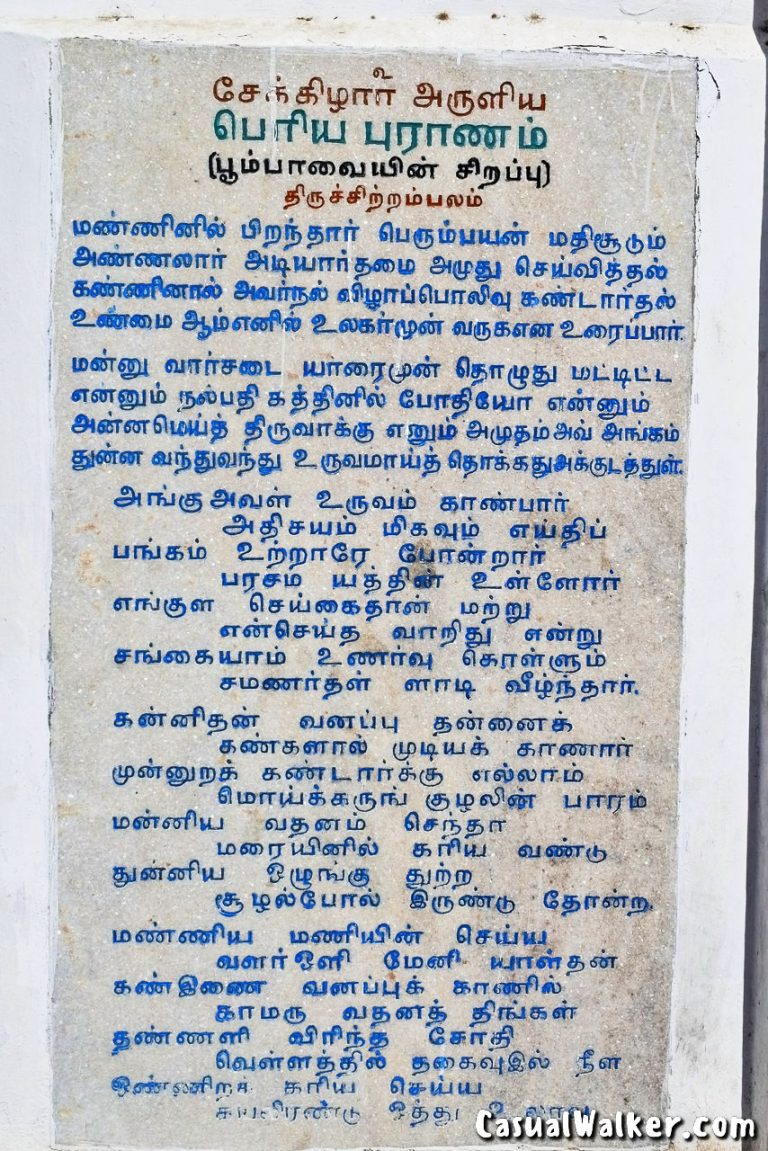 சேக்கிழார் அருளிய
பெரிய புராணம்
(பூம்பாவையின் சிறப்பு)
திருச்சிற்றம்பலம்
மண்ணினில் பிறந்தார் பெரும்பயன் மதிசூடும்
அண்ணலார் அடியார்தமை அமுது செய்வித்தல்
கண்ணினால் அவர்நல் விழாப்பொலிவு கண்டார்தல்
உண்மை ஆம்எனில் உலகர்முன் வருகஎன உரைப்பார்.
மன்னு வார்சடை யாரைமுன் தொழுது மட்டிட்ட
என்னும் நல்பதி கத்தினில் போதியோ என்னும்
அன்னமெய்த் திருவாக்கு எனும் அமுதம்அவ் அங்கம்
துன்ன வந்துவந்து உருவமாய்த் தொக்கதுஅக்குடத்துள்.
அங்கு அவள் உருவம் காண்பார்
அதிசயம் மிகவும் எய்திப்
பங்கம் உற்றாரே போன்றார்
பரசம யத்தின் உள்ளோர்
எங்குள செய்கைதான் மற்று
என்செய்த வாறிது என்று
சங்கையாம் உணர்வு கொள்ளும்
சமணர்தள் ளாடி வீழ்ந்தார்.
கன்னிதன் வனப்பு தன்னைக்
கண்களால் முடியக் காணார்
முன்னுறக் கண்டார்க்கு எல்லாம்
மொய்க்கருங் குழலின் பாரம்
மன்னிய வதனம் செந்தா
மரையினில் கரிய வண்டு
துன்னிய ஒழுங்கு துற்ற
சூழல்போல் இருண்டு தோன்ற.
மண்ணிய மணியின் செய்ய
வளர்ஒளி மேனி யாள்தன்
கண்இணை வனப்புக் காணில்
காமரு வதனத் திங்கள்
தண்ணளி விரிந்த சோதி
வெள்ளத்தில் தகைவுஇல் நீள
ஒண்ணிறக் கரிய செய்ய
கயலிரண்டு ஒத்து உலாவ
CasualWalker.com